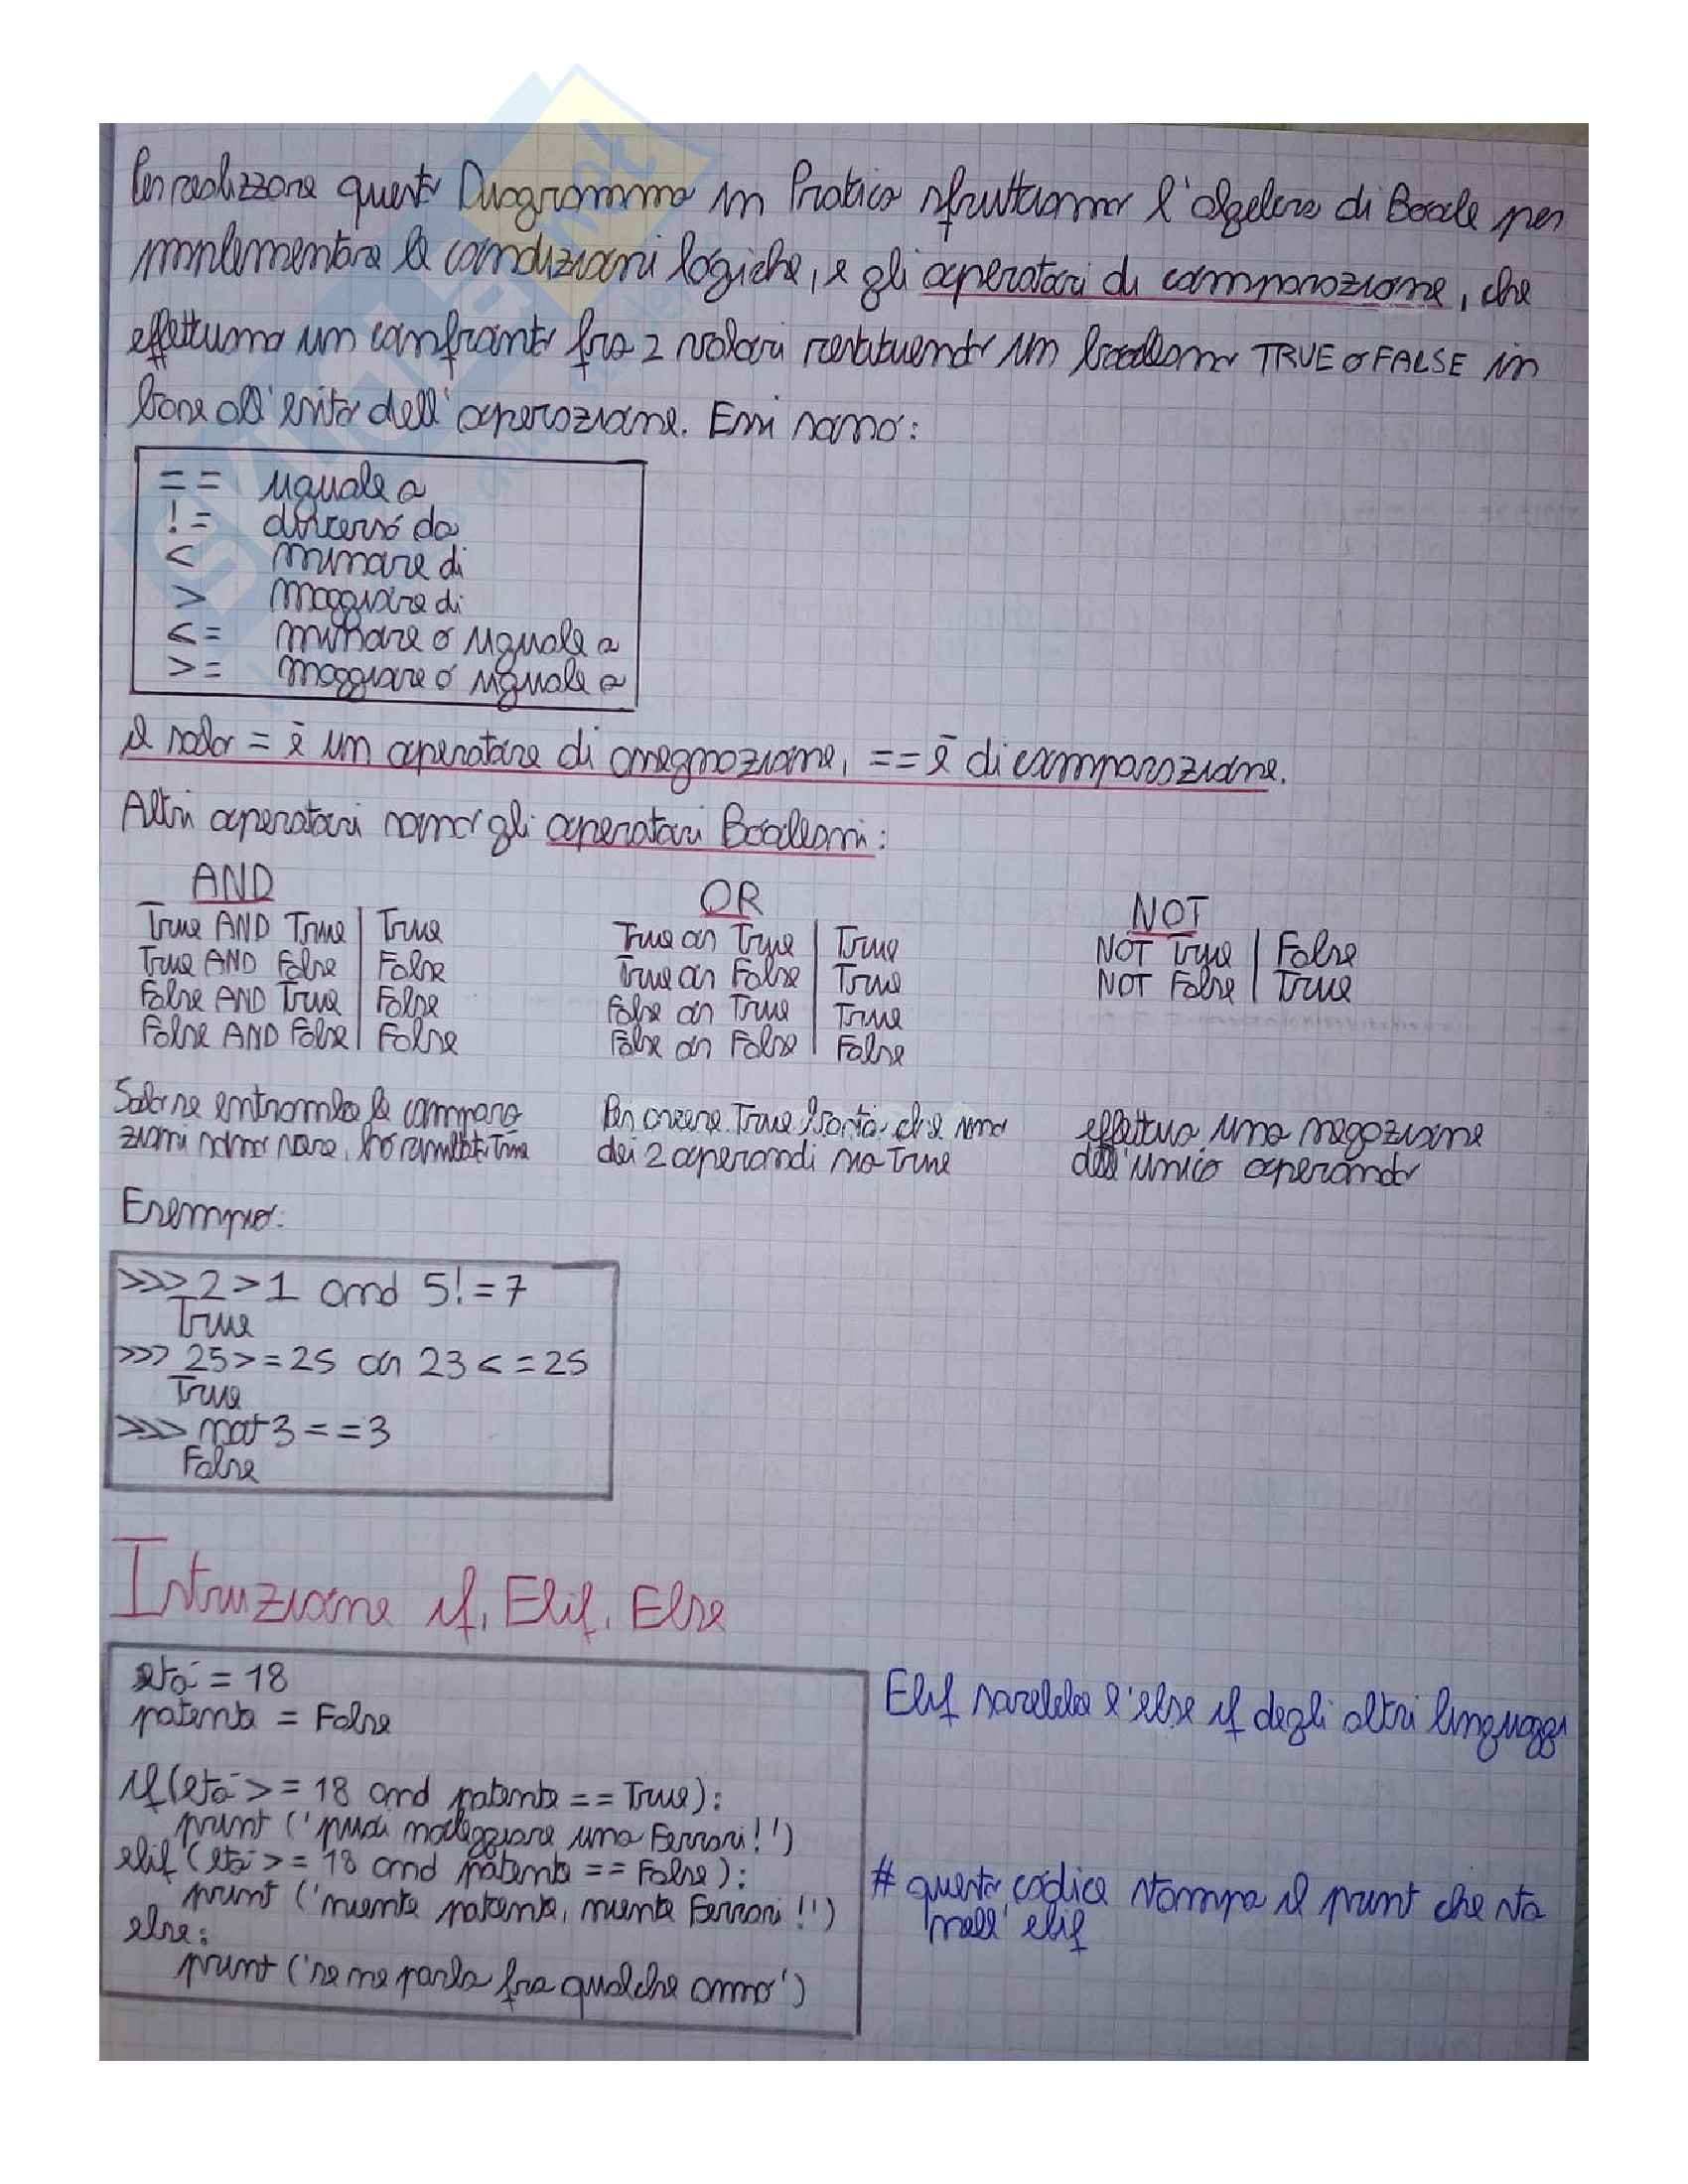 Per realizzare questo Diagramma in Pratica sfruttiamo l'algebra di Boole per
implementare le condizioni logiche, e gli operatori di comparazione, che
effettuano un confronto fra 2 valori restituendo un booleano TRUE o FALSE in
base all'esito dell'operazione. Essi sono:
== uguale a
!= diverso da
< minore di
> maggiore di
<= minore o uguale a
>= maggiore o uguale a
Il solo = è un operatore di assegnazione, == è di comparazione.
Altri operatori sono gli operatori Booleani:
AND
True AND True | True
True AND False | False
False AND True | False
False AND False | False
Solo se entrambe le compara
zioni sono vere, ho risultato True
OR
True or True | True
True or False | True
False or True | True
False or False | False
Per avere True basta che uno
dei 2 operandi sia True
NOT
NOT True | False
NOT False | True
effettua una negazione
dell'unico operando
Esempio:
>>> 2>1 and 5!=7
True
>>> 25>=25 or 23<=25
True
>>> not 3==3
False
Istruzione if, Elif, Else
età = 18
patente = False
if(età >= 18 and patente == True):
print ('puoi noleggiare una Ferrari!')
elif (età >= 18 and patente == False):
print ('niente patente, niente Ferrari!')
else:
print ('se ne parla fra qualche anno')
Elif sarebbe l'else if degli altri linguaggi
# questo codice stampa il print che sta
nell'elif